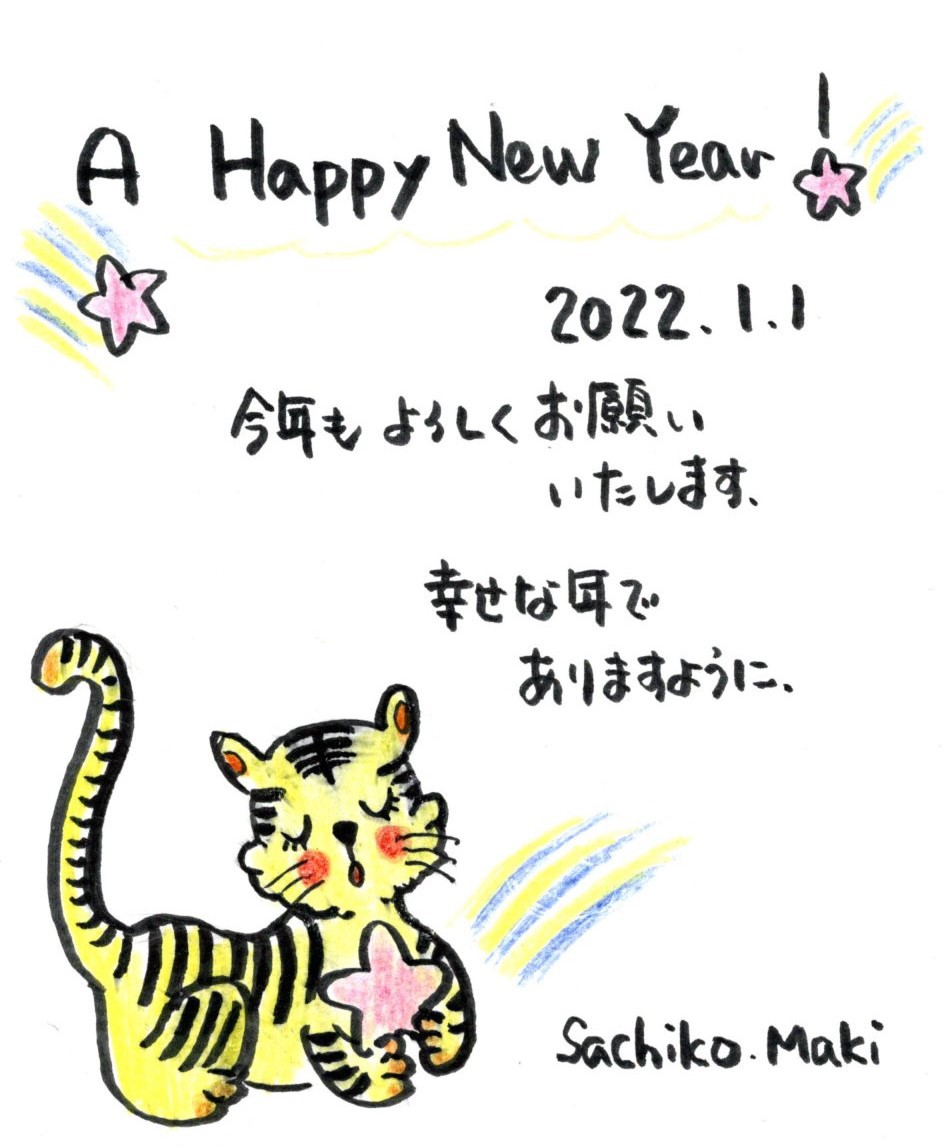 A Happy New Year!
2022.1.1
今年もよろしくお願い
いたします、
幸せな年で
ありますように、
Sachiko.Maki